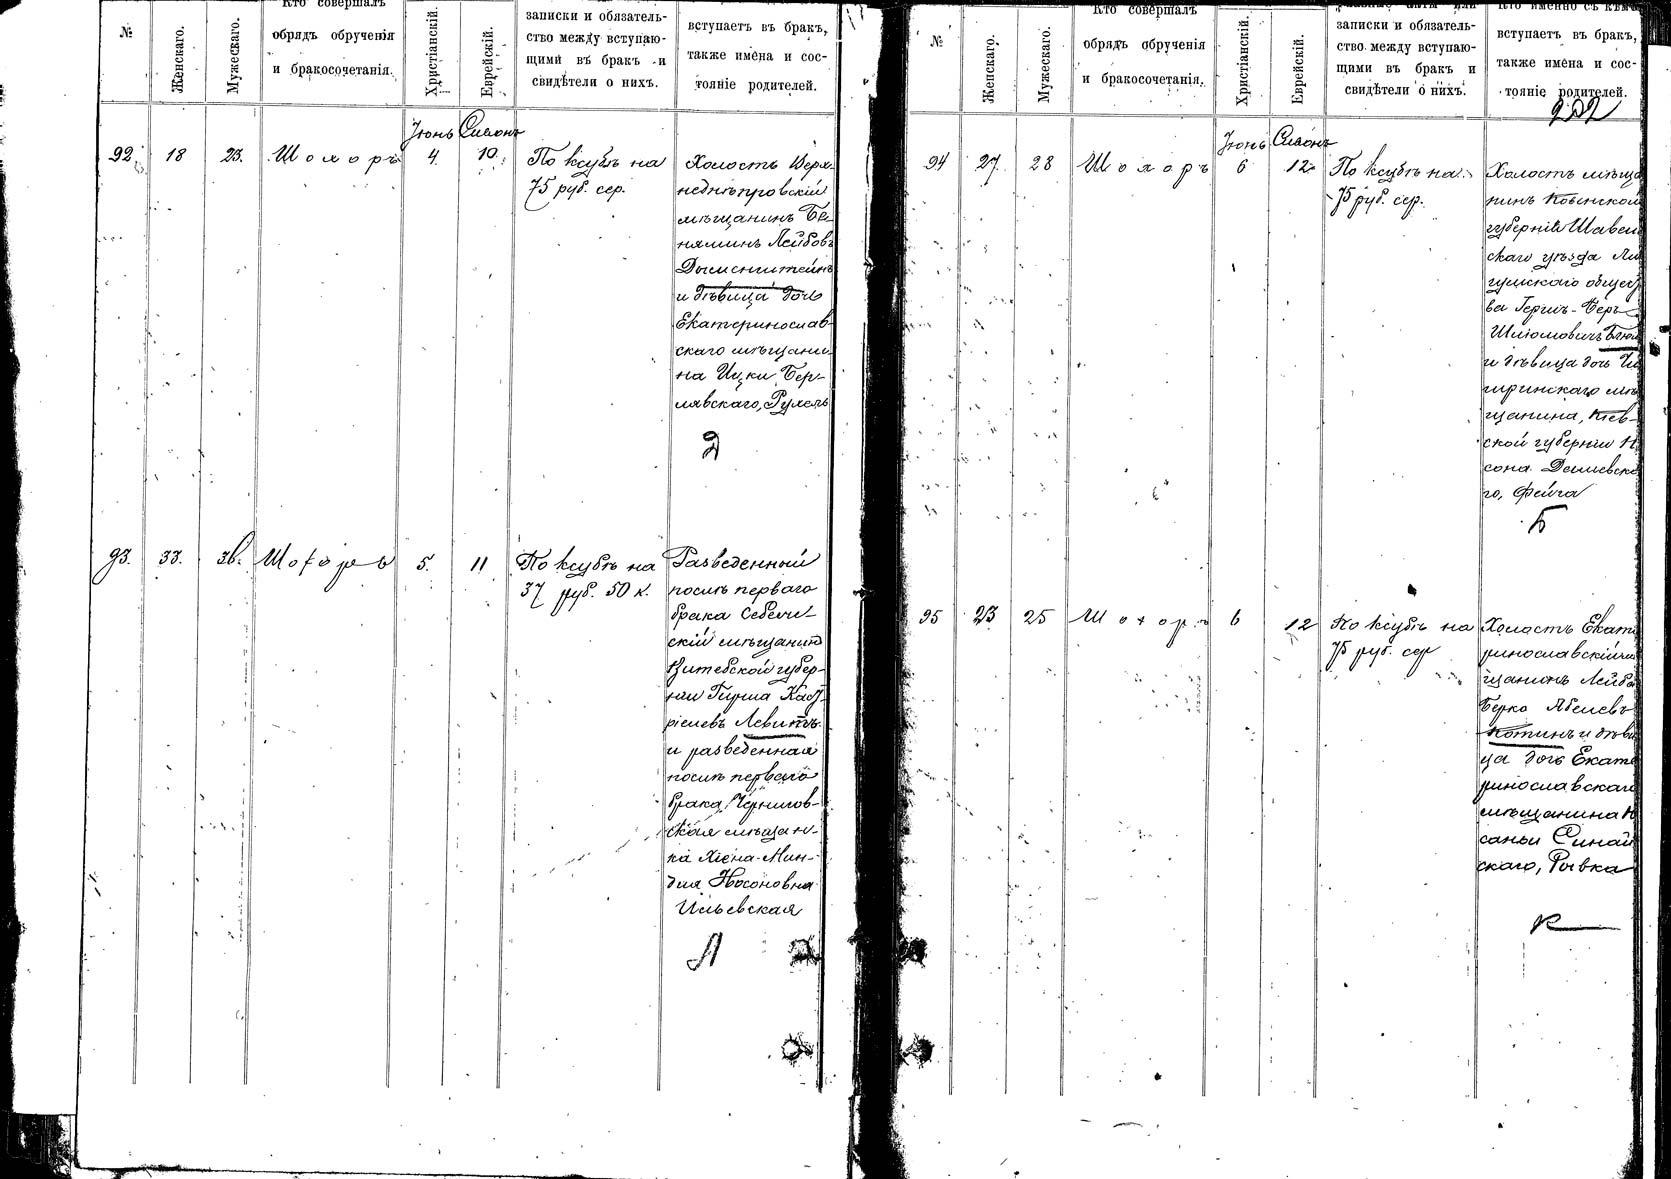 №
Женскаго.
Мужескаго.
Кто совершалъ
обрядъ обрученія
и бракосочетанія.
Христіанскій.
Еврейскій.
записки и обязатель-
ство между вступаю-
щими въ бракъ и
свидѣтели о нихъ.
вступаетъ въ бракъ,
также имена и сос-
тояніе родителей.
Іюнь Сивонъ
92 18 23. Шохоръ 4. 10.
По ксубѣ на
75 руб. сер.
Холостъ Верх-
неднѣпровскій
мѣщанинъ Бе-
няминъ Лейбовъ
и дѣвица дочь
Екатеринослав-
скаго мѣщани-
на Ицки Бер-
лявскаго, Рухель
Д
93. 33. 36. Шохоръ 5. 11
По ксубѣ на
37 руб. 50 к.
Разведенный
послѣ перваго
брака Себеж-
скій мѣщанинъ
Витебской губер-
ніи
Левитъ
и разведенная
послѣ перваго
брака Чернигов-
ская мѣщан-
ка Хiена-Мин-
для Носоновна
Ильевская
Л
№
Женскаго.
Мужескаго.
Кто совершалъ
обрядъ обрученія
и бракосочетанія.
Христіанскій.
Еврейскій.
записки и обязатель-
ство между вступаю-
щими въ бракъ и
свидѣтели о нихъ.
Кто именно съ кѣмъ
вступаетъ въ бракъ,
также имена и сос-
тояніе родителей.
Іюнь Сивонъ
94 27. 28 Шохоръ 6 12
По ксубѣ на
75 руб. сер.
Холостъ мѣща
нинъ Ковенской
губерніи Шавель
скаго уѣзда
общест
ва Гершъ-Беръ
Шліомовичъ
и дѣвица дочь Чи
гиринскаго мѣ
щанина, Кіев-
ской губерніи Н
сона Дашевска
го, Фейга
Б
95 23 25 Шохоръ 6 12
По ксубѣ на
75 руб. сер
Холостъ Екате
ринославскій мѣ
щанинъ Лейба
Берко Абелевъ
Котинъ и дѣви
ца дочь Екате
ринославскаго
мѣщанина Н
саньи Синай
скаго, Рывка
К